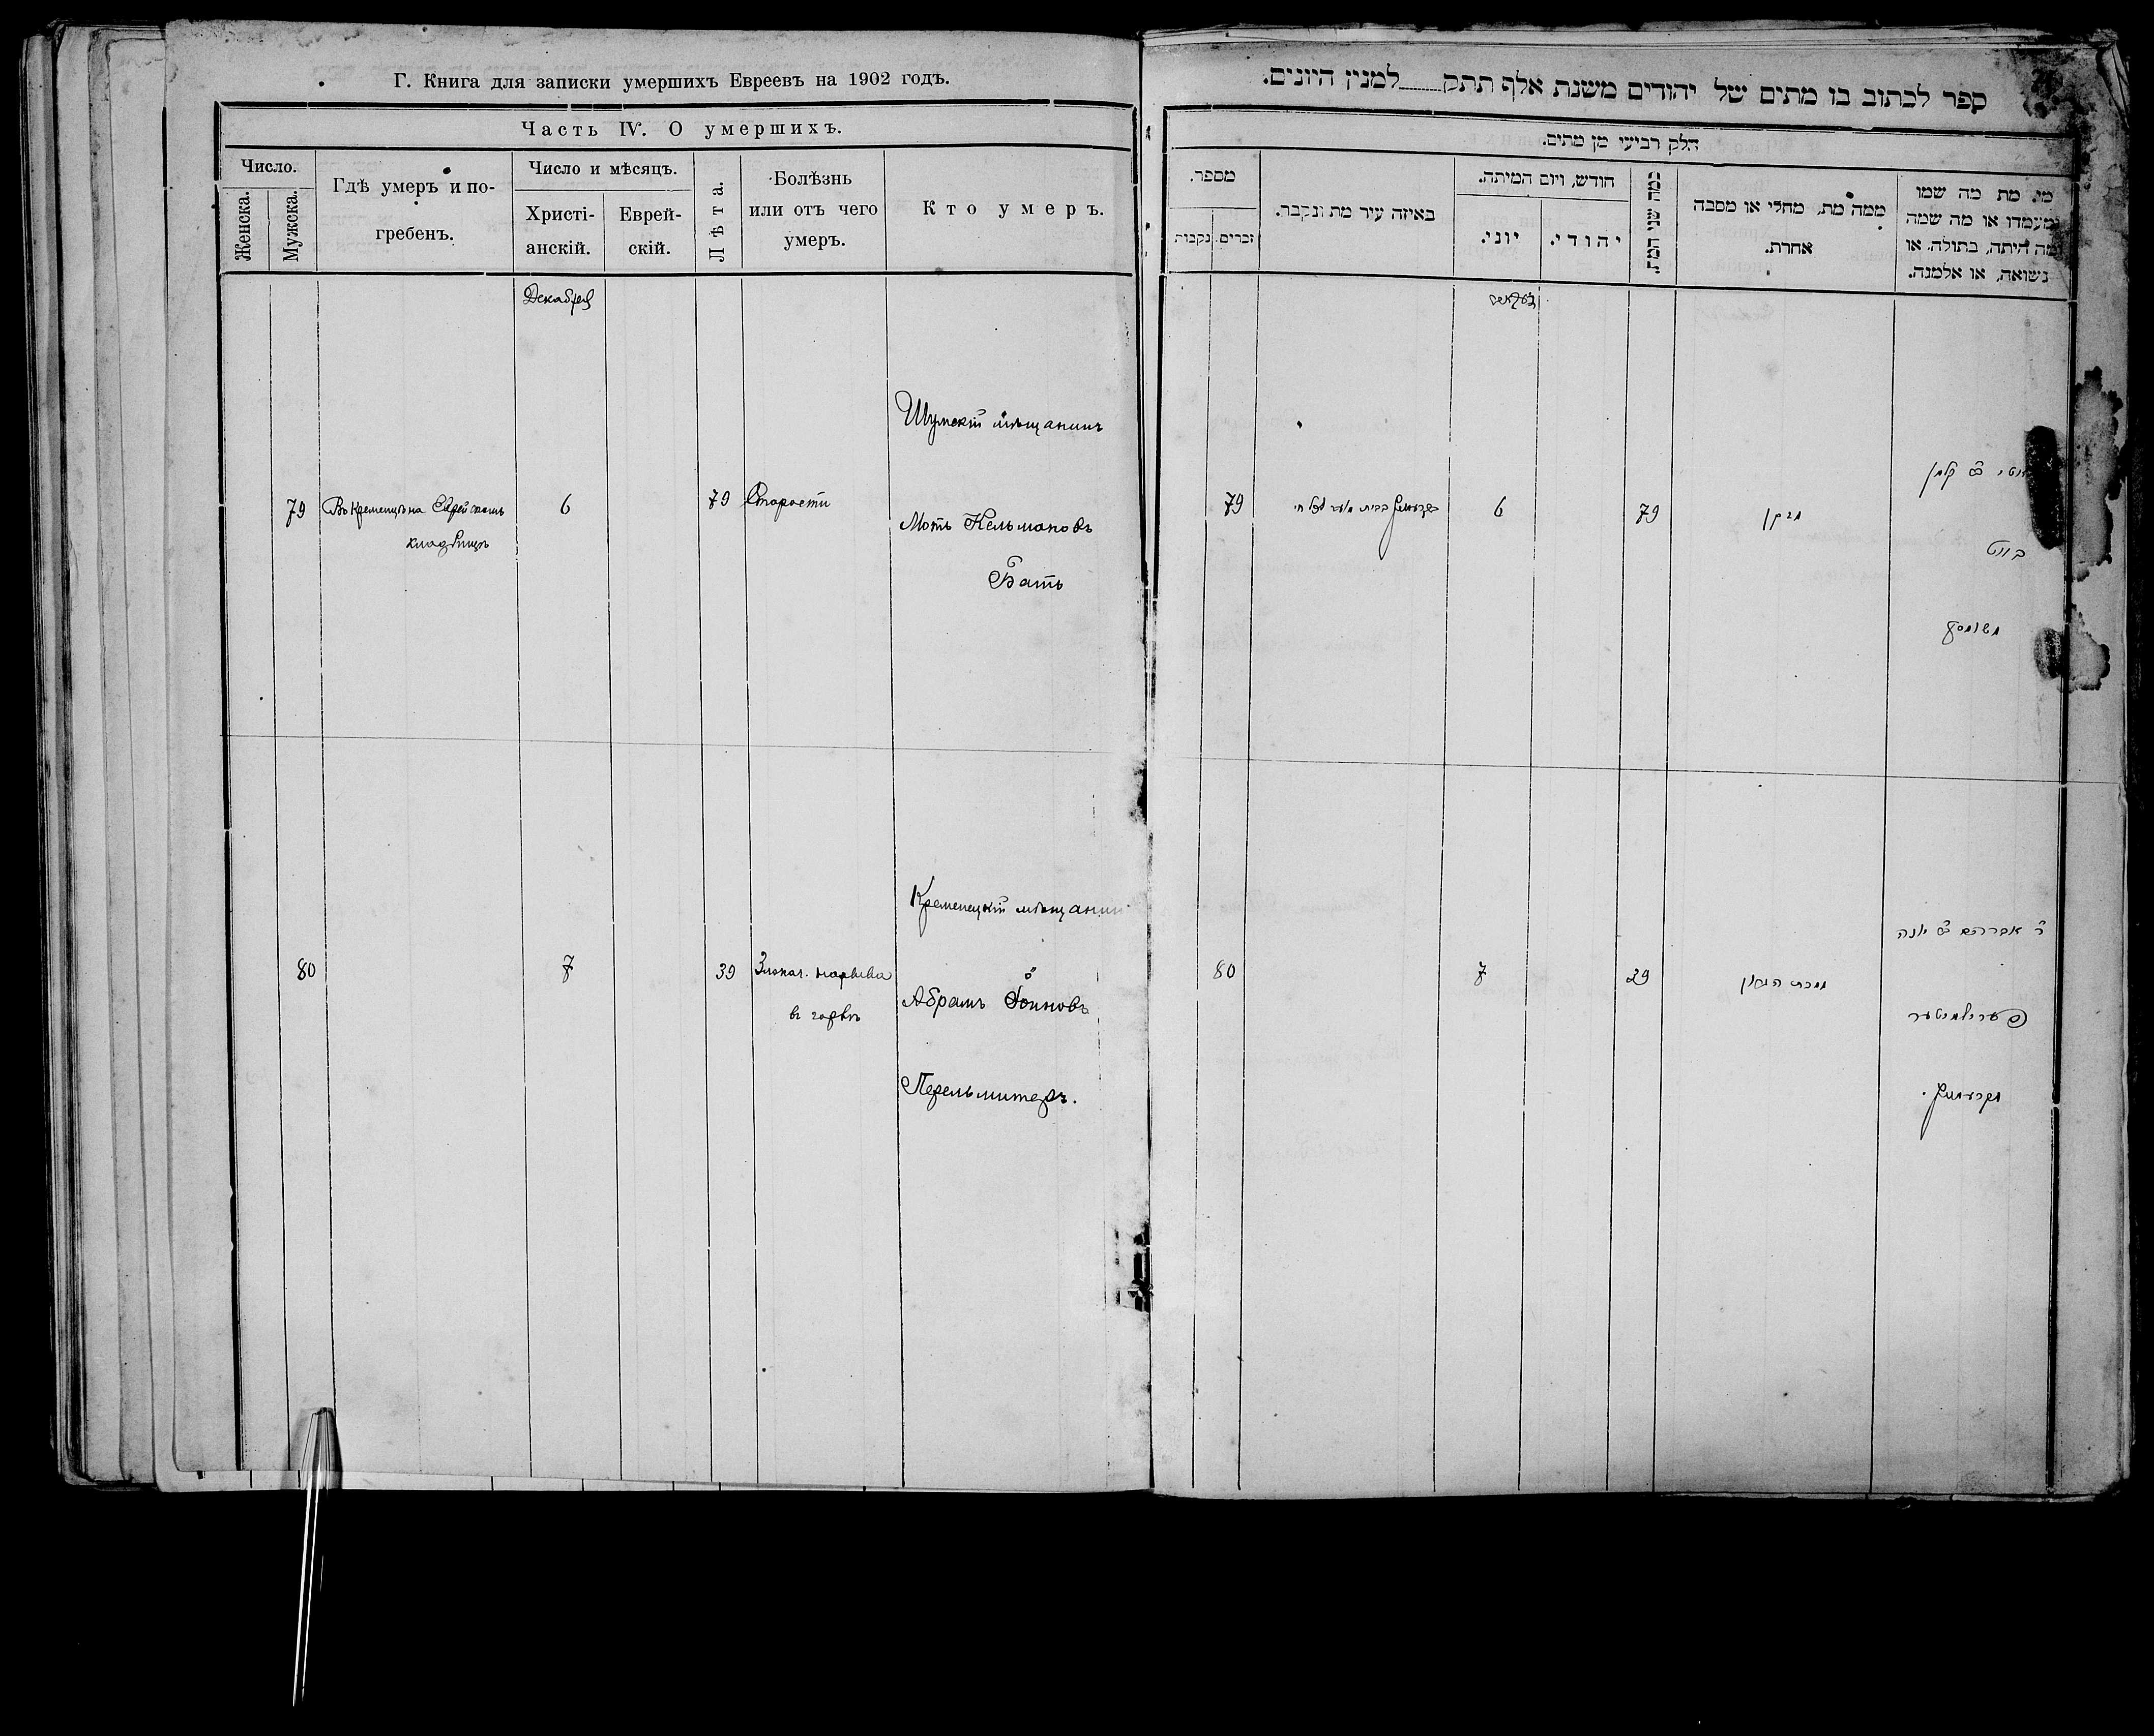 Г. Книга для записки умершихъ Евреевъ на 1902 годъ.
Часть IV. О умершихъ.
Число.
Женска.
Мужска.
Гдѣ умеръ и по-
гребенъ.
Число и мѣсяцъ.
Христі-
анскій.
Еврей-
скій.
Лѣта.
Болѣзнь
или отъ чего
умеръ.
Кто умеръ.
Декабрь
79
Въ Кременцѣ на Еврейскомъ
кладбищѣ
6
79
Старости
Шумскій мѣщанинъ
Моть Кельмановъ
Батъ
80
7
39
Злокач. нарыва
въ горлѣ
Кременецкій мѣщанинъ
Абрамъ
Перельмитеръ.
ספר לכתוב בו מתים של יהודים משנת אלף תתק למנין היונים.
חלק רביעי מן מתים.
מספר.
זכרים
נקבות
באיזה עיר מת ונקבר.
חודש, ויום המיתה.
יוני.
יהודי.
כמה שני המת.
ממה מת, מחלי או מסבה
אחרת.
מי מת מה שמו
ומעמדו או מה שמה
ומה היתה, בתולה, או
נשואה, או אלמנה.
דעקאבר
79
6
79
מזקן
קלמן
באט
משומסק
80
7
39
מכת הגרון
ר' אברהם ב"ר יונה
פערילמיטער
מקרעמניץ.